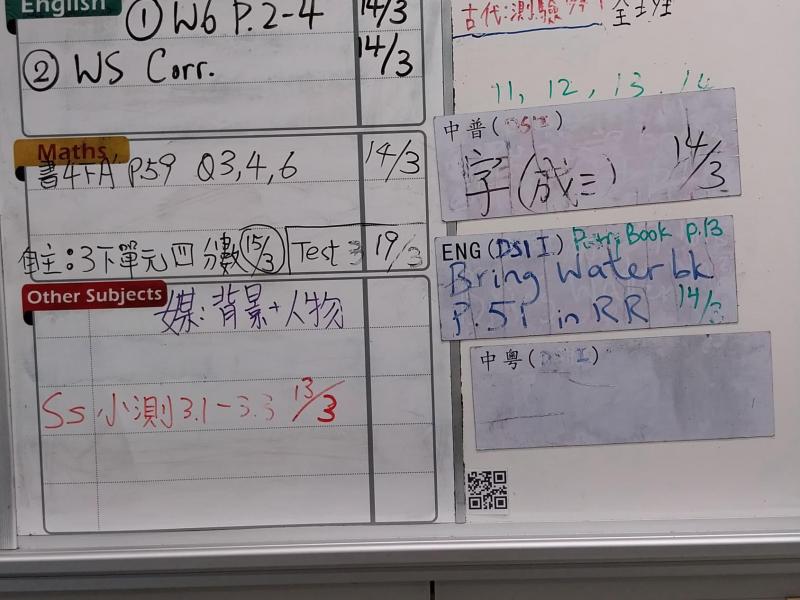 English
① WB P.2-4 14/3
② WS Corr. 14/3
Maths
書4下A P.59 Q3,4,6 14/3
自主:3下單元四 分數 15/3 Test 19/3
Other Subjects
媒:背景+人物
Ss 小測 3.1-3.3 13/3
古代:測驗
11, 12, 13, 14
中普(DSI I)
字(成三) 14/3
ENG(DSI I) Book P.13
Bring Water bk
P.51 in RR 14/3
中粤(DSI I)